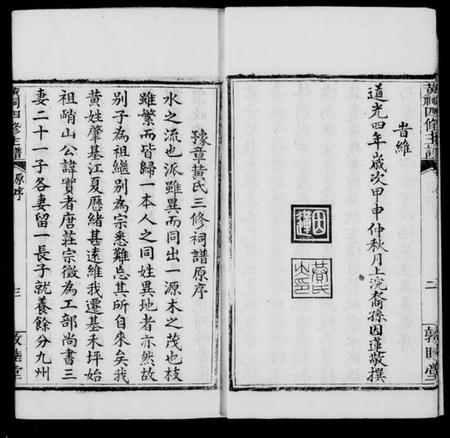 黃祠四修主譜
二
敦睦堂
旹維
道光四年歲次甲申仲秋月上浣裔孫因蓮敬撰
豫章黃氏三修祠譜原序
水之流也派雖異而同出一源木之茂也枝
雖繁而皆歸一本人之同姓異地者亦然故
別子為祖繼別為宗悉難忘其所自來矣我
黃姓肇基江夏歷緒甚遠維我遷基未坪始
祖峭山公諱實者唐莊宗徵為工部尚書三
妻二十一子各妻留一長子就養餘分九州
黃祠四修主譜
原序
三
敦睦堂